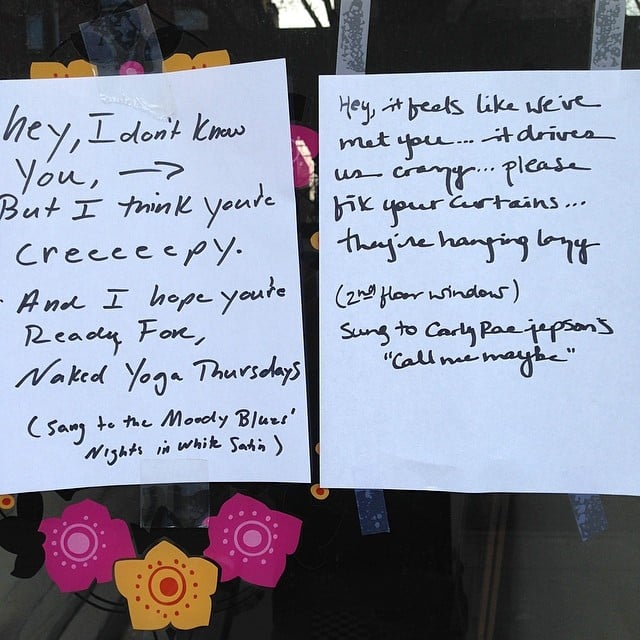 hey, I don't know
you, →
But I think you're
creeeeepy.
And I hope you're
Ready For,
Naked Yoga Thursdays
(sang to the Moody Blues'
Nights in White Satin)
Hey, it feels like we've
met you... it drives
us crazy... please
fix your curtains...
they're hanging lazy
(2nd floor window)
Sung to Carly Rae jepson's
"Call me maybe"